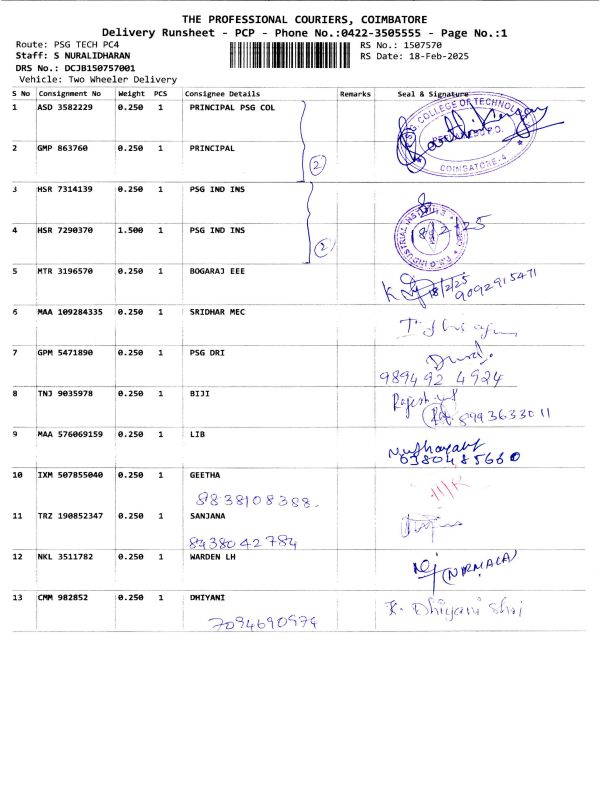 THE PROFESSIONAL COURIERS, COIMBATORE
Delivery Runsheet - PCP - Phone No.:0422-3505555 - Page No.:1
Route: PSG TECH PC4 RS No.: 1507570
Staff: S NURALIDHARAN RS Date: 18-Feb-2025
DRS No.: DCJB150757001
Vehicle: Two Wheeler Delivery
S No Consignment No Weight PCS Consignee Details Remarks Seal & Signature
1 ASD 3582229 0.250 1 PRINCIPAL PSG COL
PSG COLLEGE OF TECHNOLOGY
COIMBATORE-4
2 GMP 863760 0.250 1 PRINCIPAL
2
3 HSR 7314139 0.250 1 PSG IND INS
4 HSR 7290370 1.500 1 PSG IND INS
2
18/2/25
P.S.G. INDUSTRIAL INSTITUTE
5 MTR 3196570 0.250 1 BOGARAJ EEE
18/2/25
9092915471
6 MAA 109284335 0.250 1 SRIDHAR MEC
7 GPM 5471890 0.250 1 PSG DRI
9894 92 4924
8 TNJ 9035978 0.250 1 BIJI
8993633011
9 MAA 576069159 0.250 1 LIB
10 IXM 507855040 0.250 1 GEETHA
8838108388.
11 TRZ 190852347 0.250 1 SANJANA
8438042784
12 NKL 3511782 0.250 1 WARDEN LH
(NIRMALA)
13 CMM 982852 0.250 1 DHIYANI
7094690974
K. Dhiyani Shri